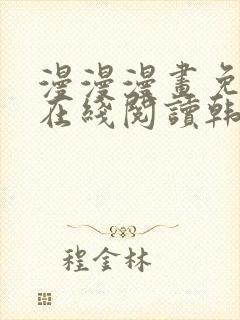 漫漫漫畫免
在綫閱讀韩
程金林